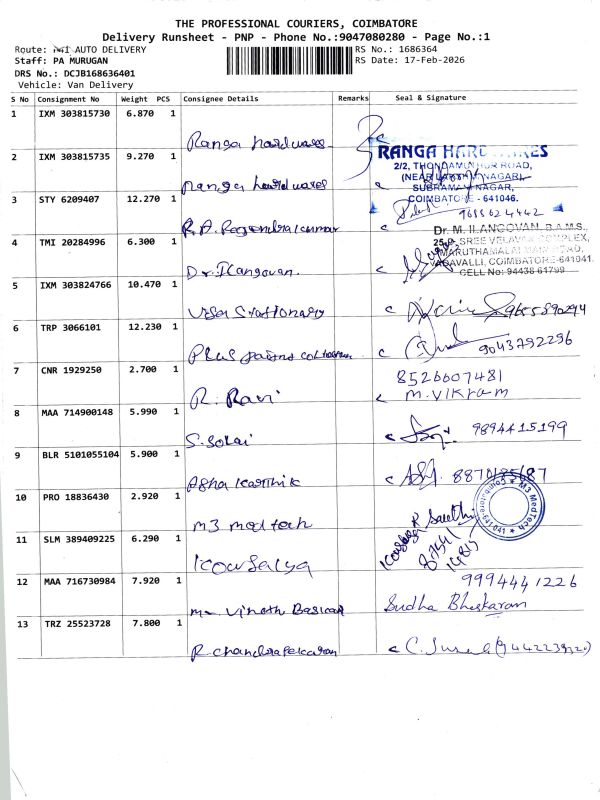 THE PROFESSIONAL COURIERS, COIMBATORE
Delivery Runsheet - PNP - Phone No.:9047080280 - Page No.:1
Route: AUTO DELIVERY
Staff: PA MURUGAN
DRS No.: DCJB168636401
Vehicle: Van Delivery
RS No.: 1686364
RS Date: 17-Feb-2026
S No Consignment No Weight PCS Consignee Details Remarks Seal & Signature
1 IXM 303815730 6.870 1 Ranga hardwares
2 IXM 303815735 9.270 1 Ranga hardwares
RANGA HARDWARES
2/2, THONDAMUTHUR ROAD,
SUBRAMANY NAGAR,
COIMBATORE - 641046.
3 STY 6209407 12.270 1 R.A. Rajendrakumar 9688624442
4 TMI 20284996 6.300 1 Dr. Ilangovan.
Dr. M. ILANGOVAN, B.A.M.S.,
MARUTHAMALAI MAIN ROAD,
VADAVALLI, COIMBATORE-641041.
CELL No: 94438 61799
5 IXM 303824766 10.470 1 Stationary
6 TRP 3066101 12.230 1 9043792296
7 CNR 1929250 2.700 1 R. Ravi 8526607481
M. VIKRAM
8 MAA 714900148 5.990 1 S. 9894415199
9 BLR 5101055104 5.900 1 Karthik
10 PRO 18836430 2.920 1 M3 medtech
M3 MedTech
11 SLM 389409225 6.290 1 Kowsalya
12 MAA 716730984 7.920 1 Vinoth Baskar 9994441226
Sudha Bhaskaran
13 TRZ 25523728 7.800 1 R. Chandrasekaran